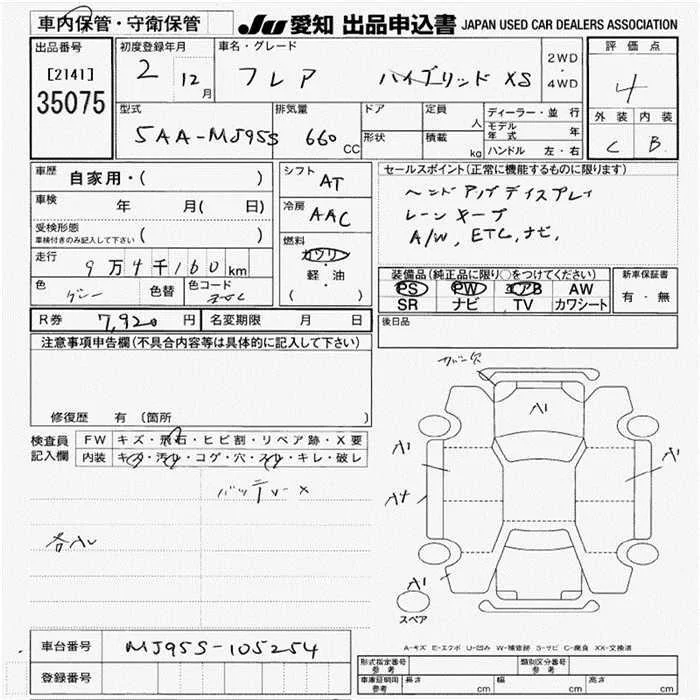 車内保管・守衛保管
JU 愛知 出品申込書 JAPAN USED CAR DEALERS ASSOCIATION
出品番号
[2141]
35075
初度登録年月
2 12月
車名・グレード
フレア ハイブリッド XS
2WD
・
4WD
評価点
4
外装 内装
C B
型式
5AA-MJ95S
排気量
660 CC
ドア
形状
定員 人
積載 kg
ディーラー・並行
モデル年式 年
ハンドル 左・右
車歴
自家用・( )
車検 年 月( 日)
受検形態
車検付きのみ記入して下さい ( )
走行
9万4千160km
色 グレー 色替 色コード ZVC
シフト
AT
冷房
AAC
燃料
ガソリン
・
軽・油
( )
セールスポイント(正常に機能するものに限ります)
ヘッドアップディスプレイ
レーンキープ
A/W, ETC, ナビ,
装備品(純正品に限り○をつけてください)
PS PW エアB AW
SR ナビ TV カワシート
新車保証書
有・無
後日品
R券 7,920円 名変期限 月 日
注意事項申告欄(不具合内容等は具体的に記入して下さい)
修復歴 有(箇所 )
検査員記入欄
FW キズ・飛石・ヒビ割・リペア跡・X要
内装 キズ・汚れ・コゲ・穴・スレ・キレ・破レ
バッテリーX
各AU
カバー欠
A1
A1
A1
A4
A1
スペア
A-キズ E-エクボ U-凹み W-補修跡 S-サビ C-腐食 XX-交換済
車台番号 MJ95S-105254
登録番号
型式指定番号 参考
類別区分番号 参考
車庫証明用 参考 長さ cm 幅 cm 高さ cm